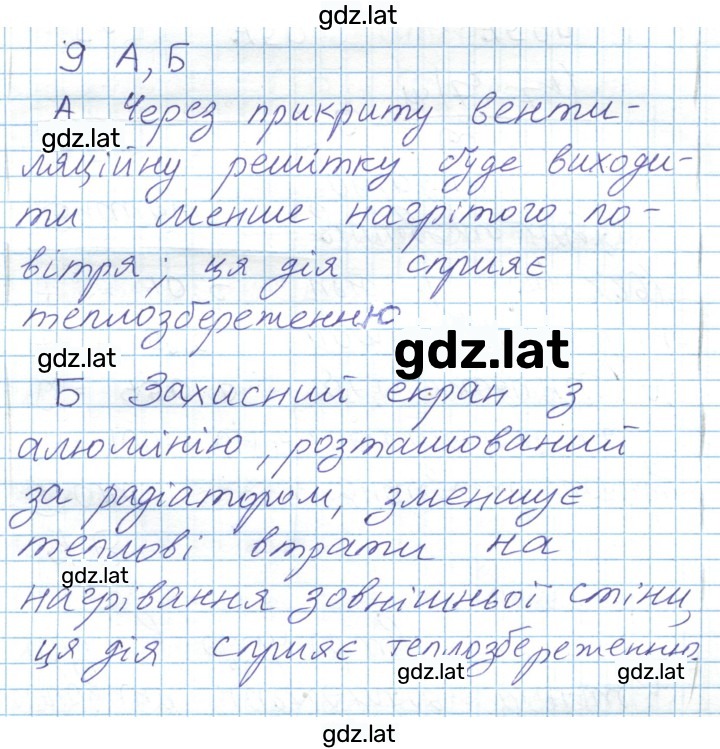 gdz.lat
9 А, Б
А Через прикриту венти-
gdz.lat
ляційну решітку буде виходи-
ти менше нагрітого по-
вітря; ця дія сприяє
теплозбереженню
gdz.lat
gdz.lat
Б Захисний екран з
алюмінію, розташований
за радіатором, зменшує
теплові втрати на
gdz.lat
нагрівання зовнішньої стіни,
ця дія сприяє теплозбереженню.
gdz.lat gdz.lat
gdz.lat